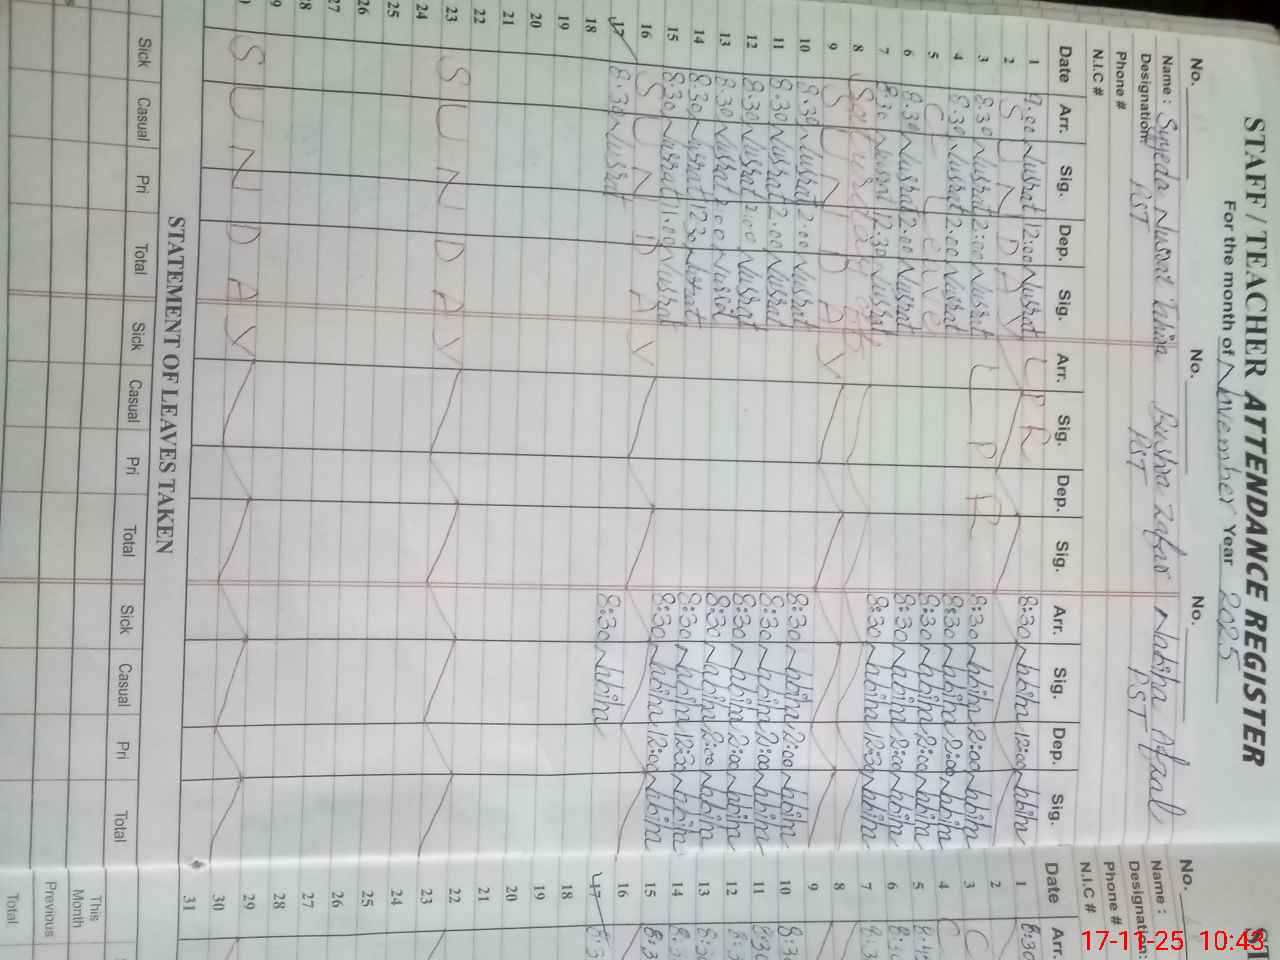 STAFF / TEACHER ATTENDANCE REGISTER
For the month of November Year 2025
No. No. No.
Name : Syeda Nusrat Tahira Bushra Zafar Nabiha Afzal
Designation PST PST PST
Phone #
N.I.C #
Date Arr. Sig. Dep. Sig. Arr. Sig. Dep. Sig. Arr. Sig. Dep. Sig.
1 9.00 Nusrat 12:00 Nusrat L P R 8:30 Nabiha 12:00 Nabiha
2 S U N D A Y
3 8:30 Nusrat 2:00 Nusrat L P R 8:30 Nabiha 2:00 Nabiha
4 8:30 Nusrat 2.00 Nusrat 8:30 Nabiha 2:00 Nabiha
5 C L Leave 8:30 Nabiha 2:00 Nabiha
6 8.30 Nusrat 2.00 Nusrat 8:30 Nabiha 2:00 Nabiha
7 8:30 Nusrat 12.30 Nusrat 8:30 Nabiha 12:30 Nabiha
8 Saturday off
9 S U N D A Y
10 8.30 Nusrat 2:00 Nusrat 8:30 Nabiha 2:00 Nabiha
11 8.30 Nusrat 2.00 Nusrat 8:30 Nabiha 2:00 Nabiha
12 8.30 Nusrat 2:00 Nusrat 8:30 Nabiha 2:00 Nabiha
13 8.30 Nusrat 2:00 Nusrat 8:30 Nabiha 2:00 Nabiha
14 8:30 Nusrat 12:30 Nusrat 8:30 Nabiha 12:30 Nabiha
15 8:30 Nusrat 11.00 Nusrat 8:30 Nabiha 12:00 Nabiha
16 S U N D A Y
17 8:30 Nusrat 8:30 Nabiha
18
19
20
21
22
23 S U N D A Y
24
25
26
27
28
9
S U N D A Y
STATEMENT OF LEAVES TAKEN
Sick Casual Pri Total Sick Casual Pri Total Sick Casual Pri Total
No.
Name :
Designation:
Phone #
N.I.C #
Date Arr.
1 8:30
2
3 C
4 C
5 8:45
6
7 8:3
8
9
10 8:30
11 8:30
12 8:3
13 8:30
14
15 8:3
16
17 8:3
18
19
20
21
22
23
24
25
26
27
28
29
30
31
This Month
Previous
Total
17-11-25 10:43